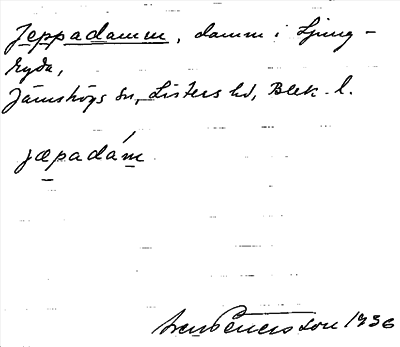 Jeppadamm, damm i Ljung-
ryda,
Jämshögs sn, Listers hd, Blek. l.
jæpadám
Sven Benersson 1936